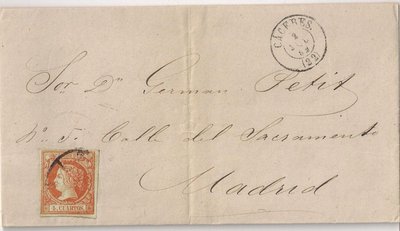 CÁCERES
(22)
Sor Dn German Petit
No 5. Calle del Sacramento
Madrid
4 CUARTOS